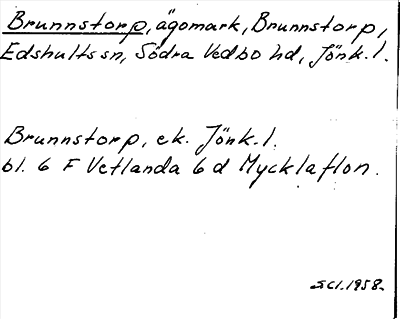 Brunnstorp, ägomark, Brunnstorp,
Edshults sn, Södra Vedbo hd, Jönk. l.
Brunnstorp, ek. Jönk. l.
bl. 6 F Vetlanda 6 d Mycklaflon.
1958.